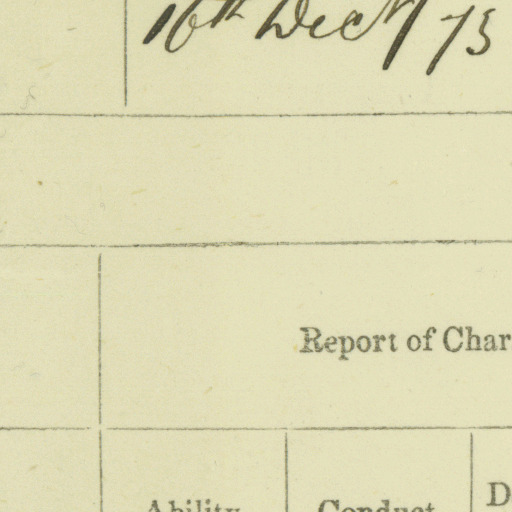 16th Decr 75
Report of Char
Ability Conduct D